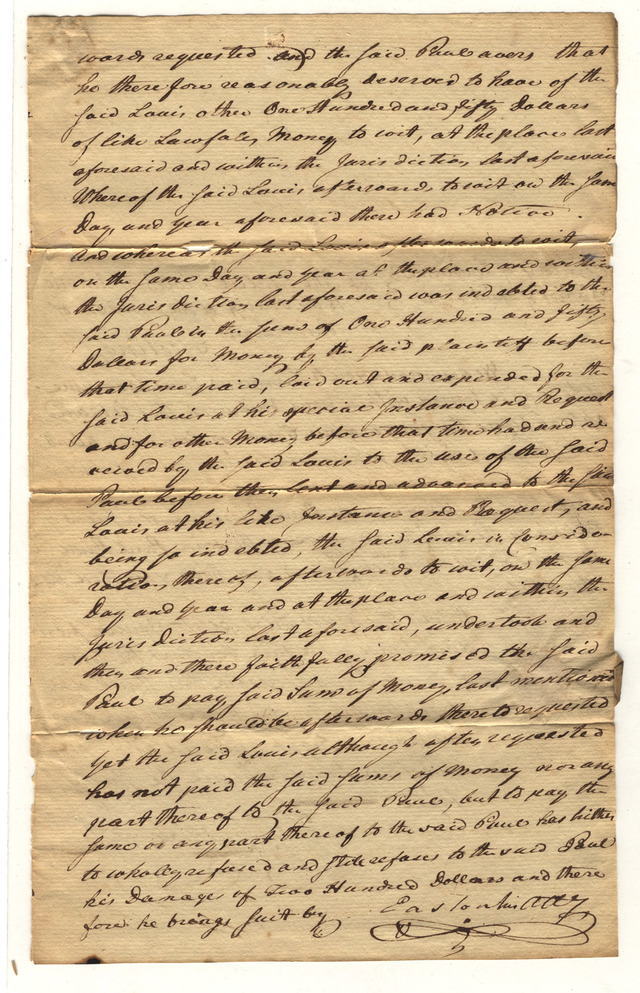 wards requested and the said Paul avers that
he therefore reasonably deserved to have of the
said Louis other One Hundred and fifty Dollars
of like Lawful Money to wit, at the place last
aforesaid and within the Jurisdiction last aforesaid
Whereof the said Louis afterwards to wit on the same
Day and year aforesaid there had Notice.
And whereas the said Louis afterwards to wit,
on the same Day and year at the place and within
the Jurisdiction last aforesaid was indebted to the
said Paul in the sum of One Hundred and Fifty
Dollars for Money by the said plaintiff before
that time paid, laid out and expended for the
said Louis at his special Instance and Request
and for other Money before that time had and re
ceived by the said Louis to the use of the said
Paul before then lent and advanced to the said
Louis at his like Instance and Request, and
being so indebted, the said Lewis in Consider
ration, thereof, afterwards to wit, on the same
Day and year and at the place and within the
Jurisdiction last aforesaid, undertook and
then and there faithfully promised the said
Paul to pay said Sum of Money last mentioned
when he should be afterwards thereto requested
yet the said Louis although often requested
has not paid the said sums of Money nor any
part thereof to the said Paul, but to pay the
same or any part thereof to the said Paul has hither
to wholly refused and still refuses to the said Paul
his Damages of Two Hundred Dollars and there
fore he brings suit by Easton his Atty